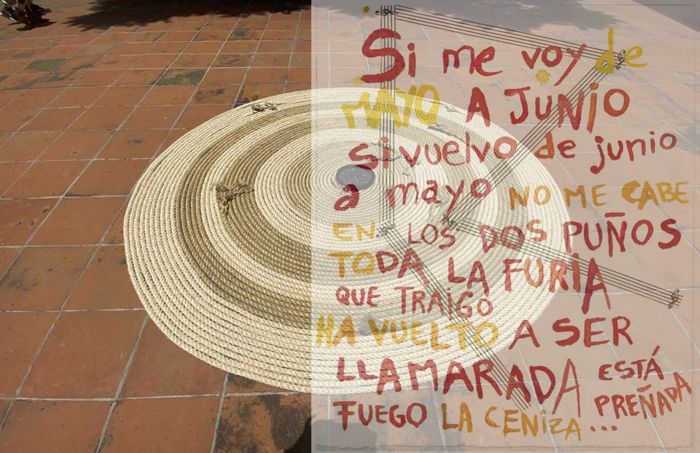 Si me voy de
MAYO A JUNIO
si vuelvo de junio
a mayo NO ME CABE
EN LOS DOS PUÑOS
TODA LA FURIA
QUE TRAIGO
HA VUELTO A SER
LLAMARADA ESTÁ
FUEGO LA CENIZA... PREÑADA